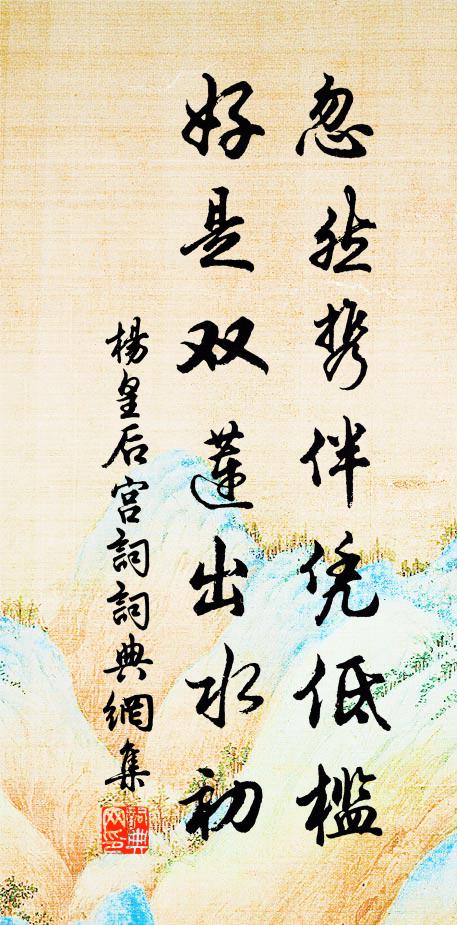 忽然携伴凭低槛
好是双莲出水初
楊皇后宫詞詞典網集
詞典網印